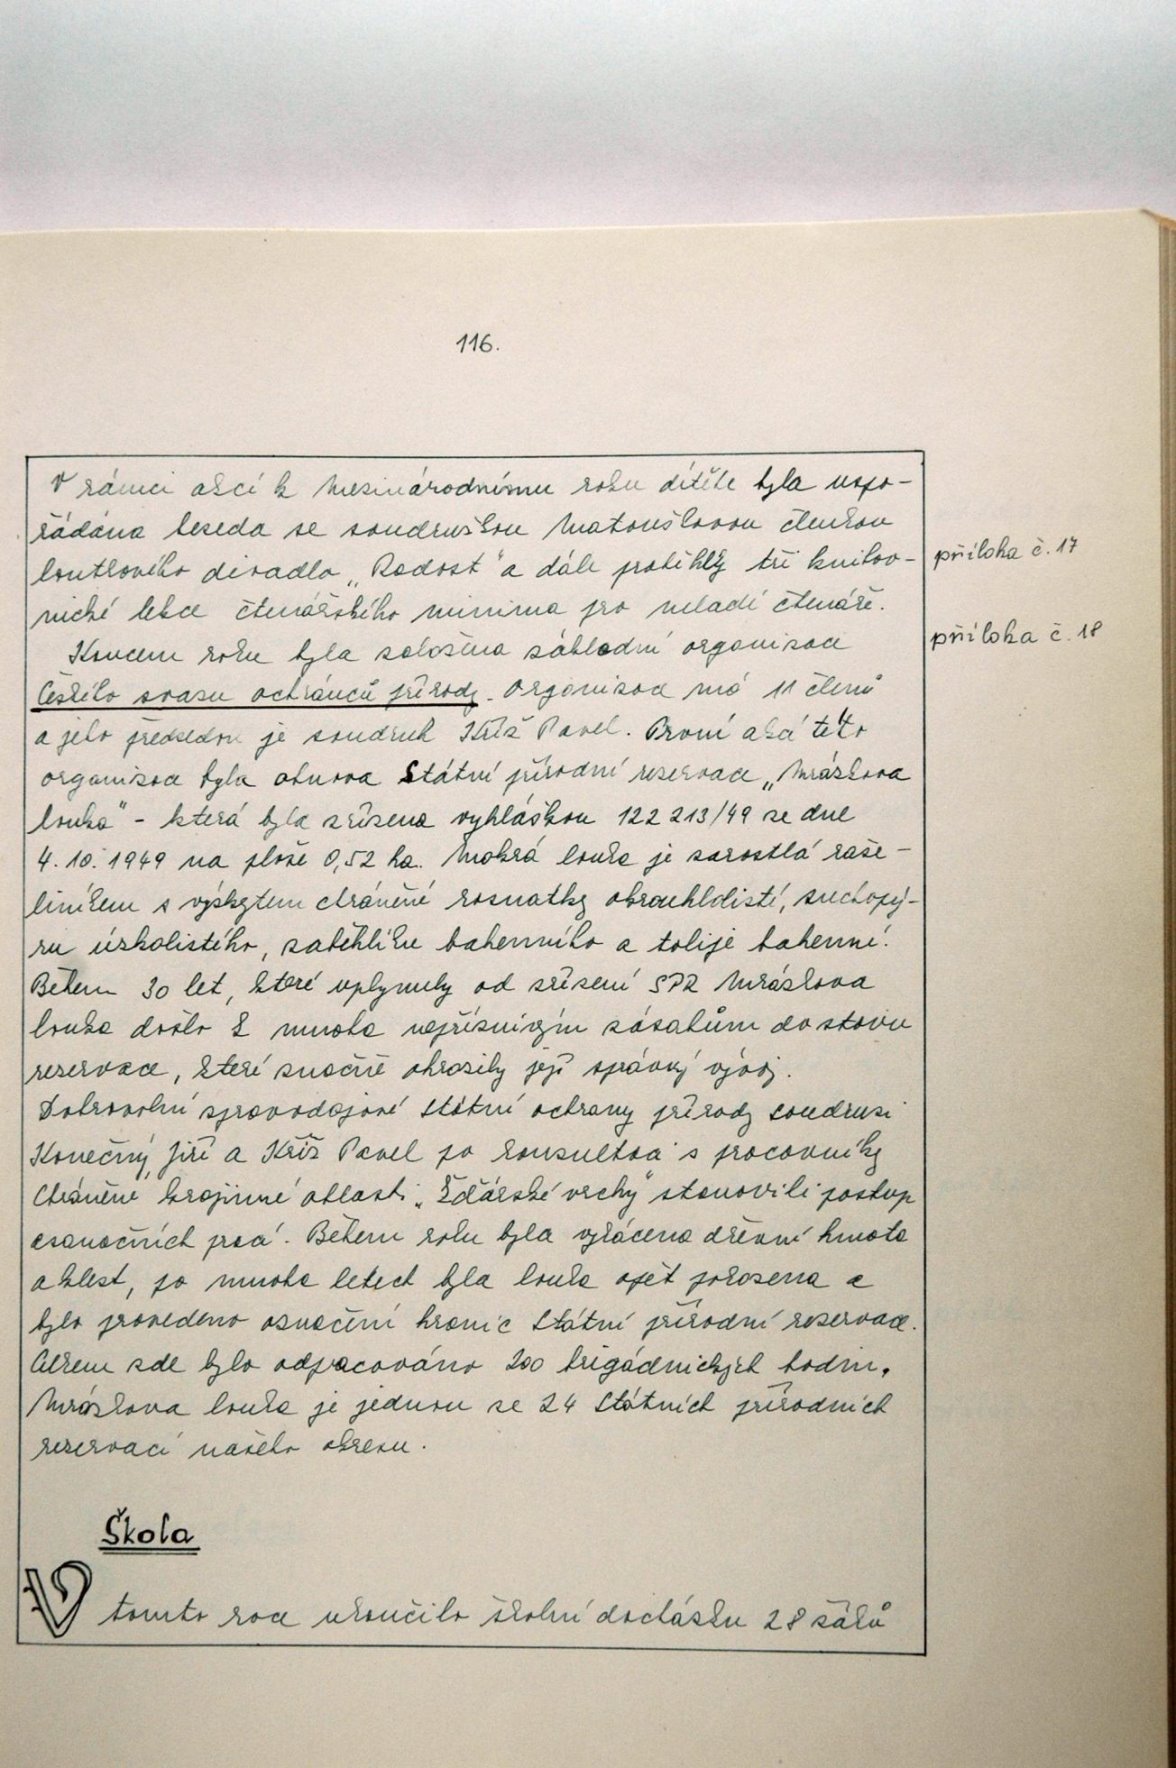 116.
V rámci akcí k Mezinárodnímu roku dítěte byla uspo-
řádána beseda se soudružkou Matouškovou členkou
loutkového divadla „Radost" a dále proběhly tři knihov-
příloha č. 17
nické lekce čtenářského minima pro mladé čtenáře.
příloha č. 18
Koncem roku byla založena základní organisace
Českého svazu ochránců přírody. Organisace má 11 členů
a jeho předsedou je soudruh Kříž Pavel. První akcí této
organisace byla obnova Státní přírodní reservace „Mrázkova
louka" - která byla zřízena vyhláškou 122 213/49 ze dne
4. 10. 1949 na ploše 0,52 ha. Mokrá louka je zarostlá raše-
liníkem s výskytem chráněné rosnatky okrouhlolisté, suchopý-
ru úzkolistého, zábělníku bahenního a tolije bahenní.
Během 30 let, které uplynuly od zřízení SPR Mrázkova
louka došlo k mnoha nepříznivým zásahům do stavu
reservace, které značně ohrozily její správný vývoj.
Dobrovolní zpravodajové státní ochrany přírody soudruzi
Konečný Jiří a Kříž Pavel po konsultaci s pracovníky
Chráněné krajinné oblasti „Žďárské vrchy" stanovili postup
asanačních prací. Během roku byla vyřácena dřevní hmota
a klest, po mnoha letech byla louka opět pokosena a
bylo provedeno označení hranic Státní přírodní reservace.
Celkem zde bylo odpracováno 200 brigádnických hodin.
Mrázkova louka je jednou ze 24 Státních přírodních
reservací našeho okresu.
Škola
V tomto roce ukončilo školní docházku 28 žáků